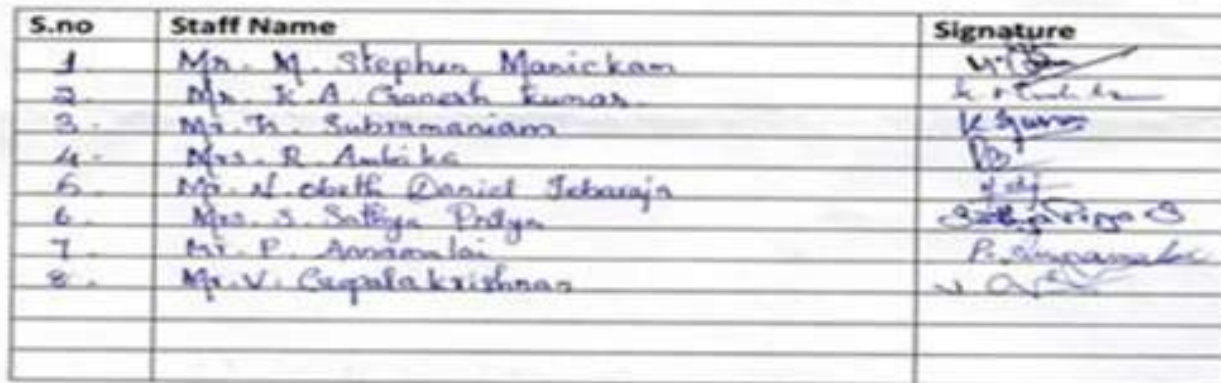 S.no Staff Name Signature
1 Mr. M. Stephen Manickam
2. Mr. K. A. Ganesh Kumar.
3. Mr. K. Subramaniam
4. Mrs. R. Ambika
5. Mr. N. Obeth Daniel Jebaraja
6. Mrs. S. Sathya Priya SathyaPriya S
7. Mr. P. Annamalai P. Annamalai
8. Mr. V. Gopalakrishnan